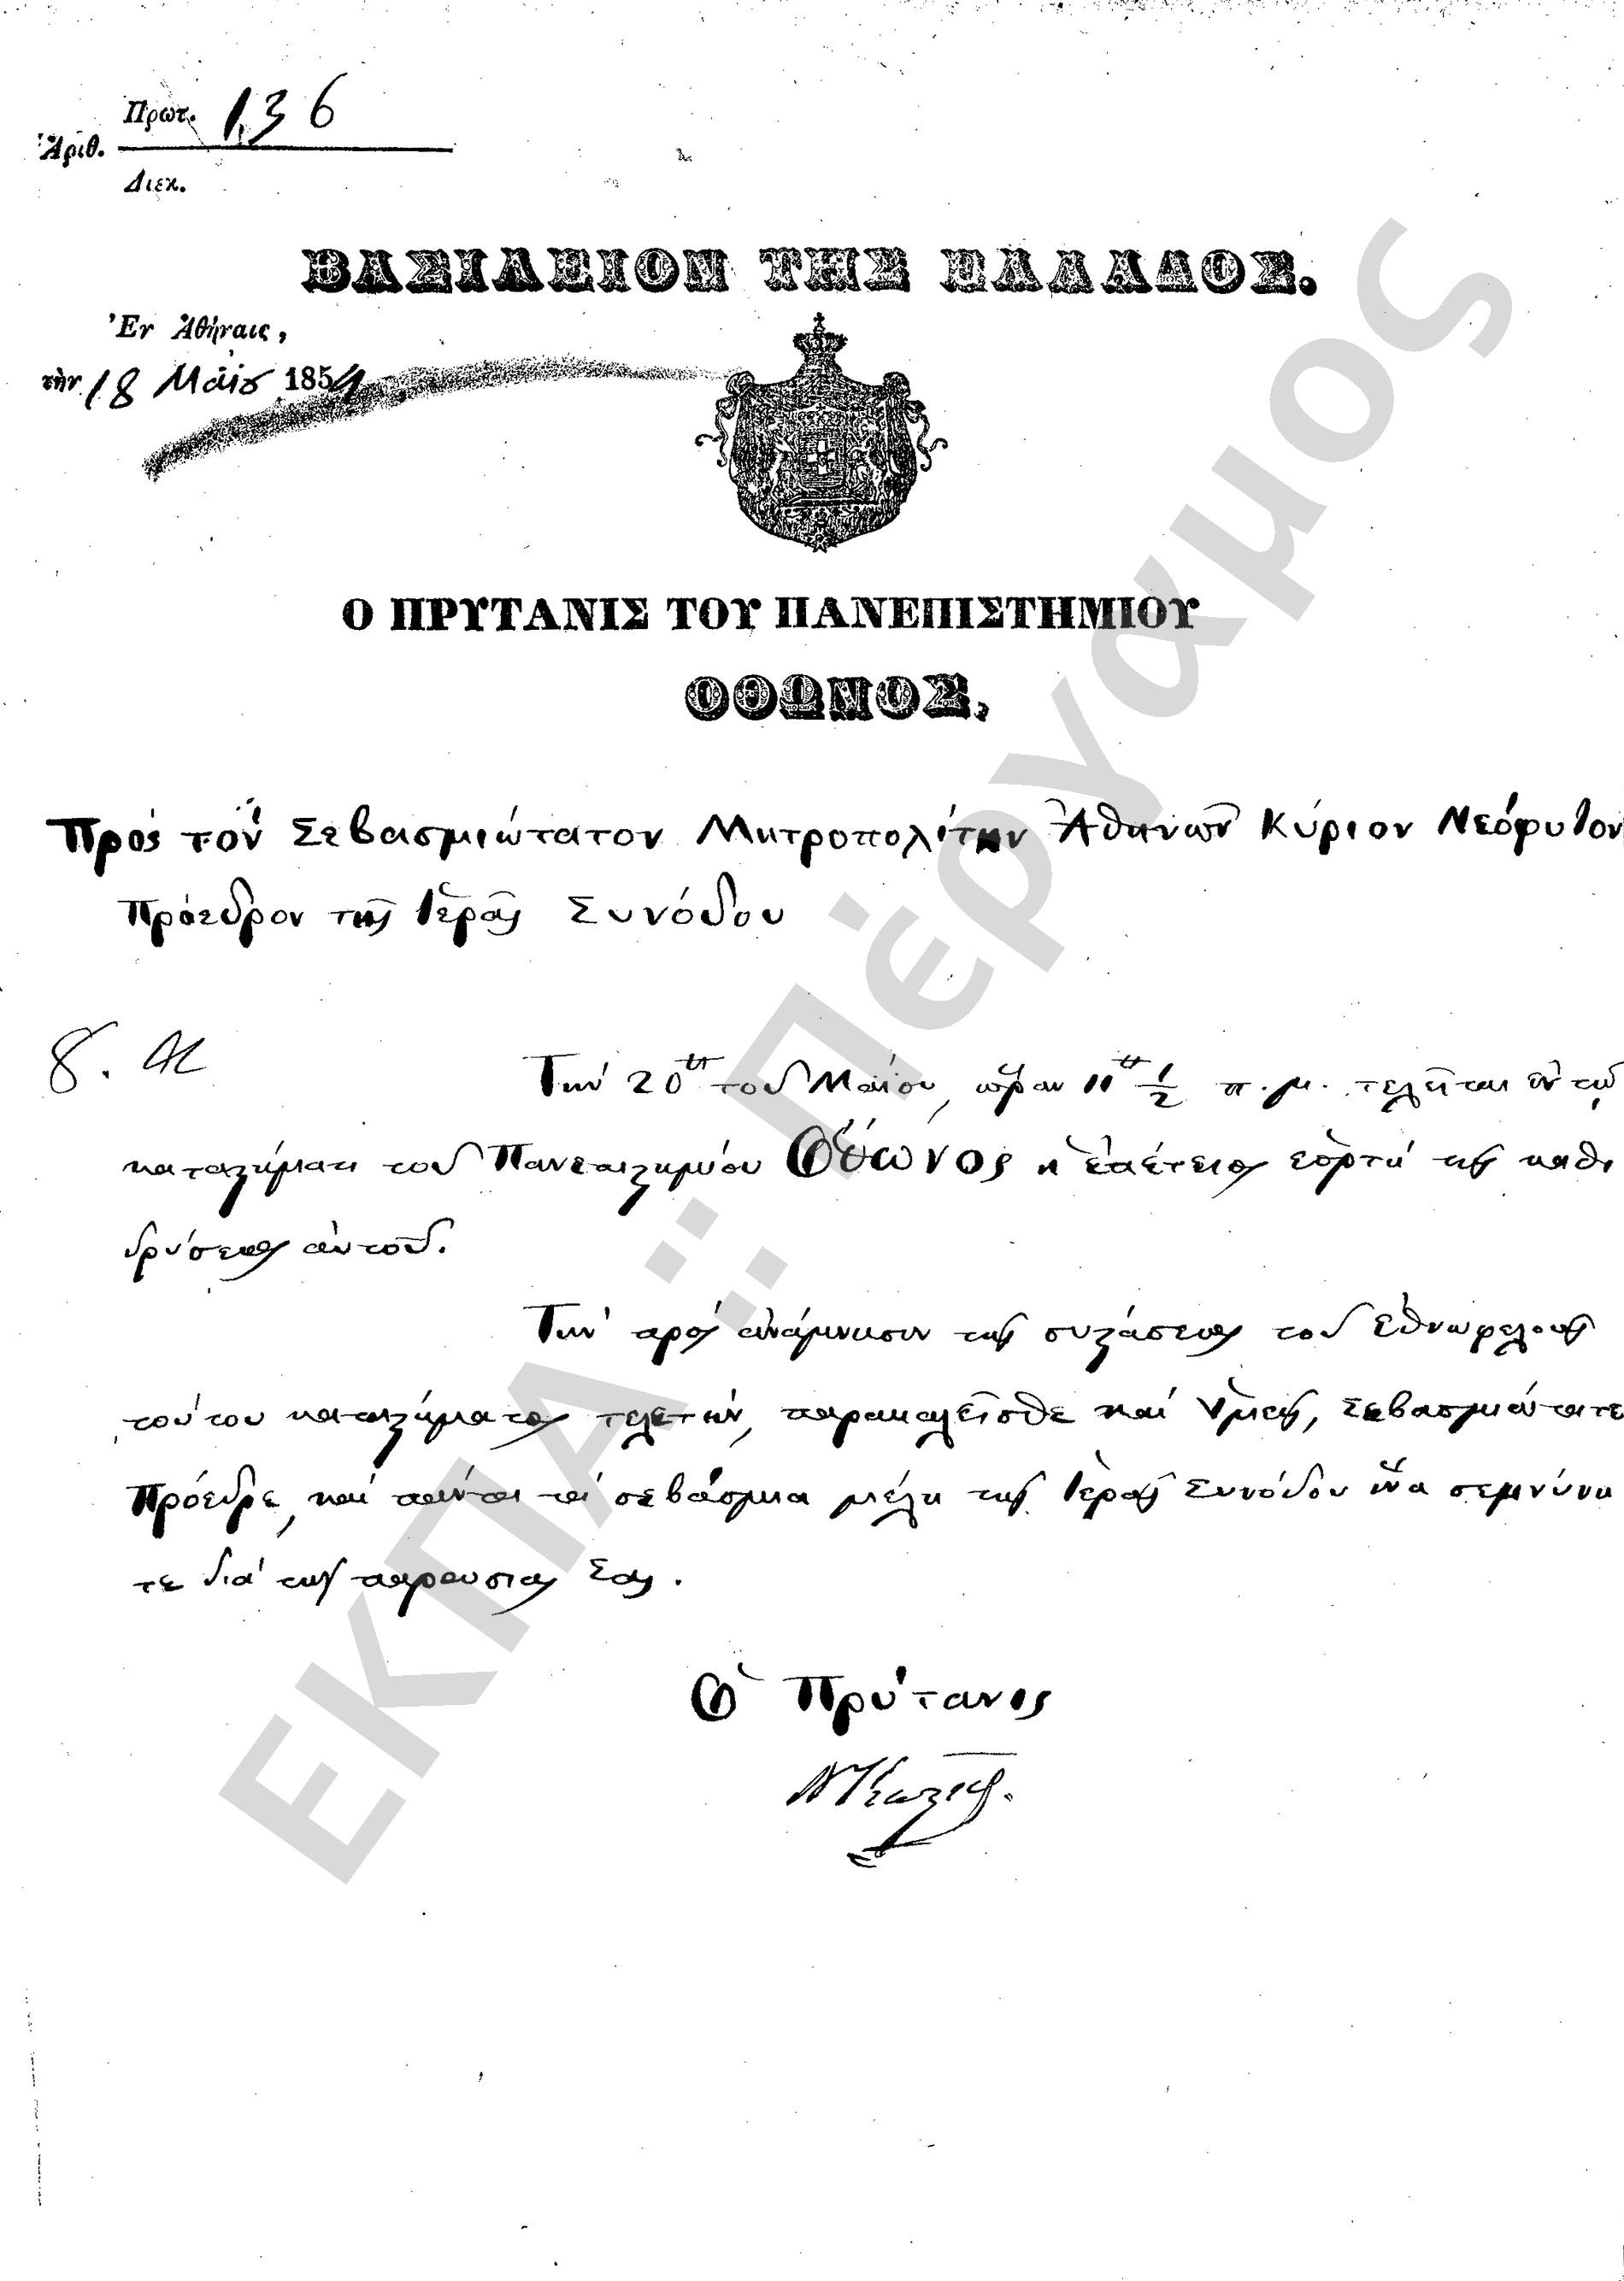 Πρωτ. 136
Ἀριθ.
Διεκ.
ΒΑΣΙΛΕΙΟΝ ΤΗΣ ΕΛΛΑΔΟΣ.
Ἐν Ἀθήναις,
τὴν 18 Μαΐου 1854
Ο ΠΡΥΤΑΝΙΣ ΤΟΥ ΠΑΝΕΠΙΣΤΗΜΙΟΥ
ΟΘΩΝΟΣ,
Πρὸς τὸν Σεβασμιώτατον Μητροπολίτην Ἀθηνῶν Κύριον Νεόφυτον
Πρόεδρον τῆς Ἱερᾶς Συνόδου
Τὴν 20ην τοῦ Μαΐου, ὥραν 11ην 1/2 π.μ. τελεῖται ἐν τῷ
καταστήματι τοῦ Πανεπιστημίου Ὄθωνος ἡ ἐπέτειος ἑορτὴ τῆς καθι
δρύσεως αὐτοῦ.
Τὴν πρὸς ἀνάμνησιν τῆς συστάσεως τοῦ ἐθνωφελοῦς
τούτου καταστήματος τελετὴν, παρακαλεῖσθε καὶ Ὑμεῖς, Σεβασμιώτατε
Πρόεδρε, καὶ πάντα τὰ σεβάσμια μέλη τῆς Ἱερᾶς Συνόδου ἵνα σεμνύνη
τε διὰ τῆς παρουσίας Σας.
Ὁ Πρύτανις
Ν Κωστῆς.
ΕΚΠΑ :: Πέργαμος